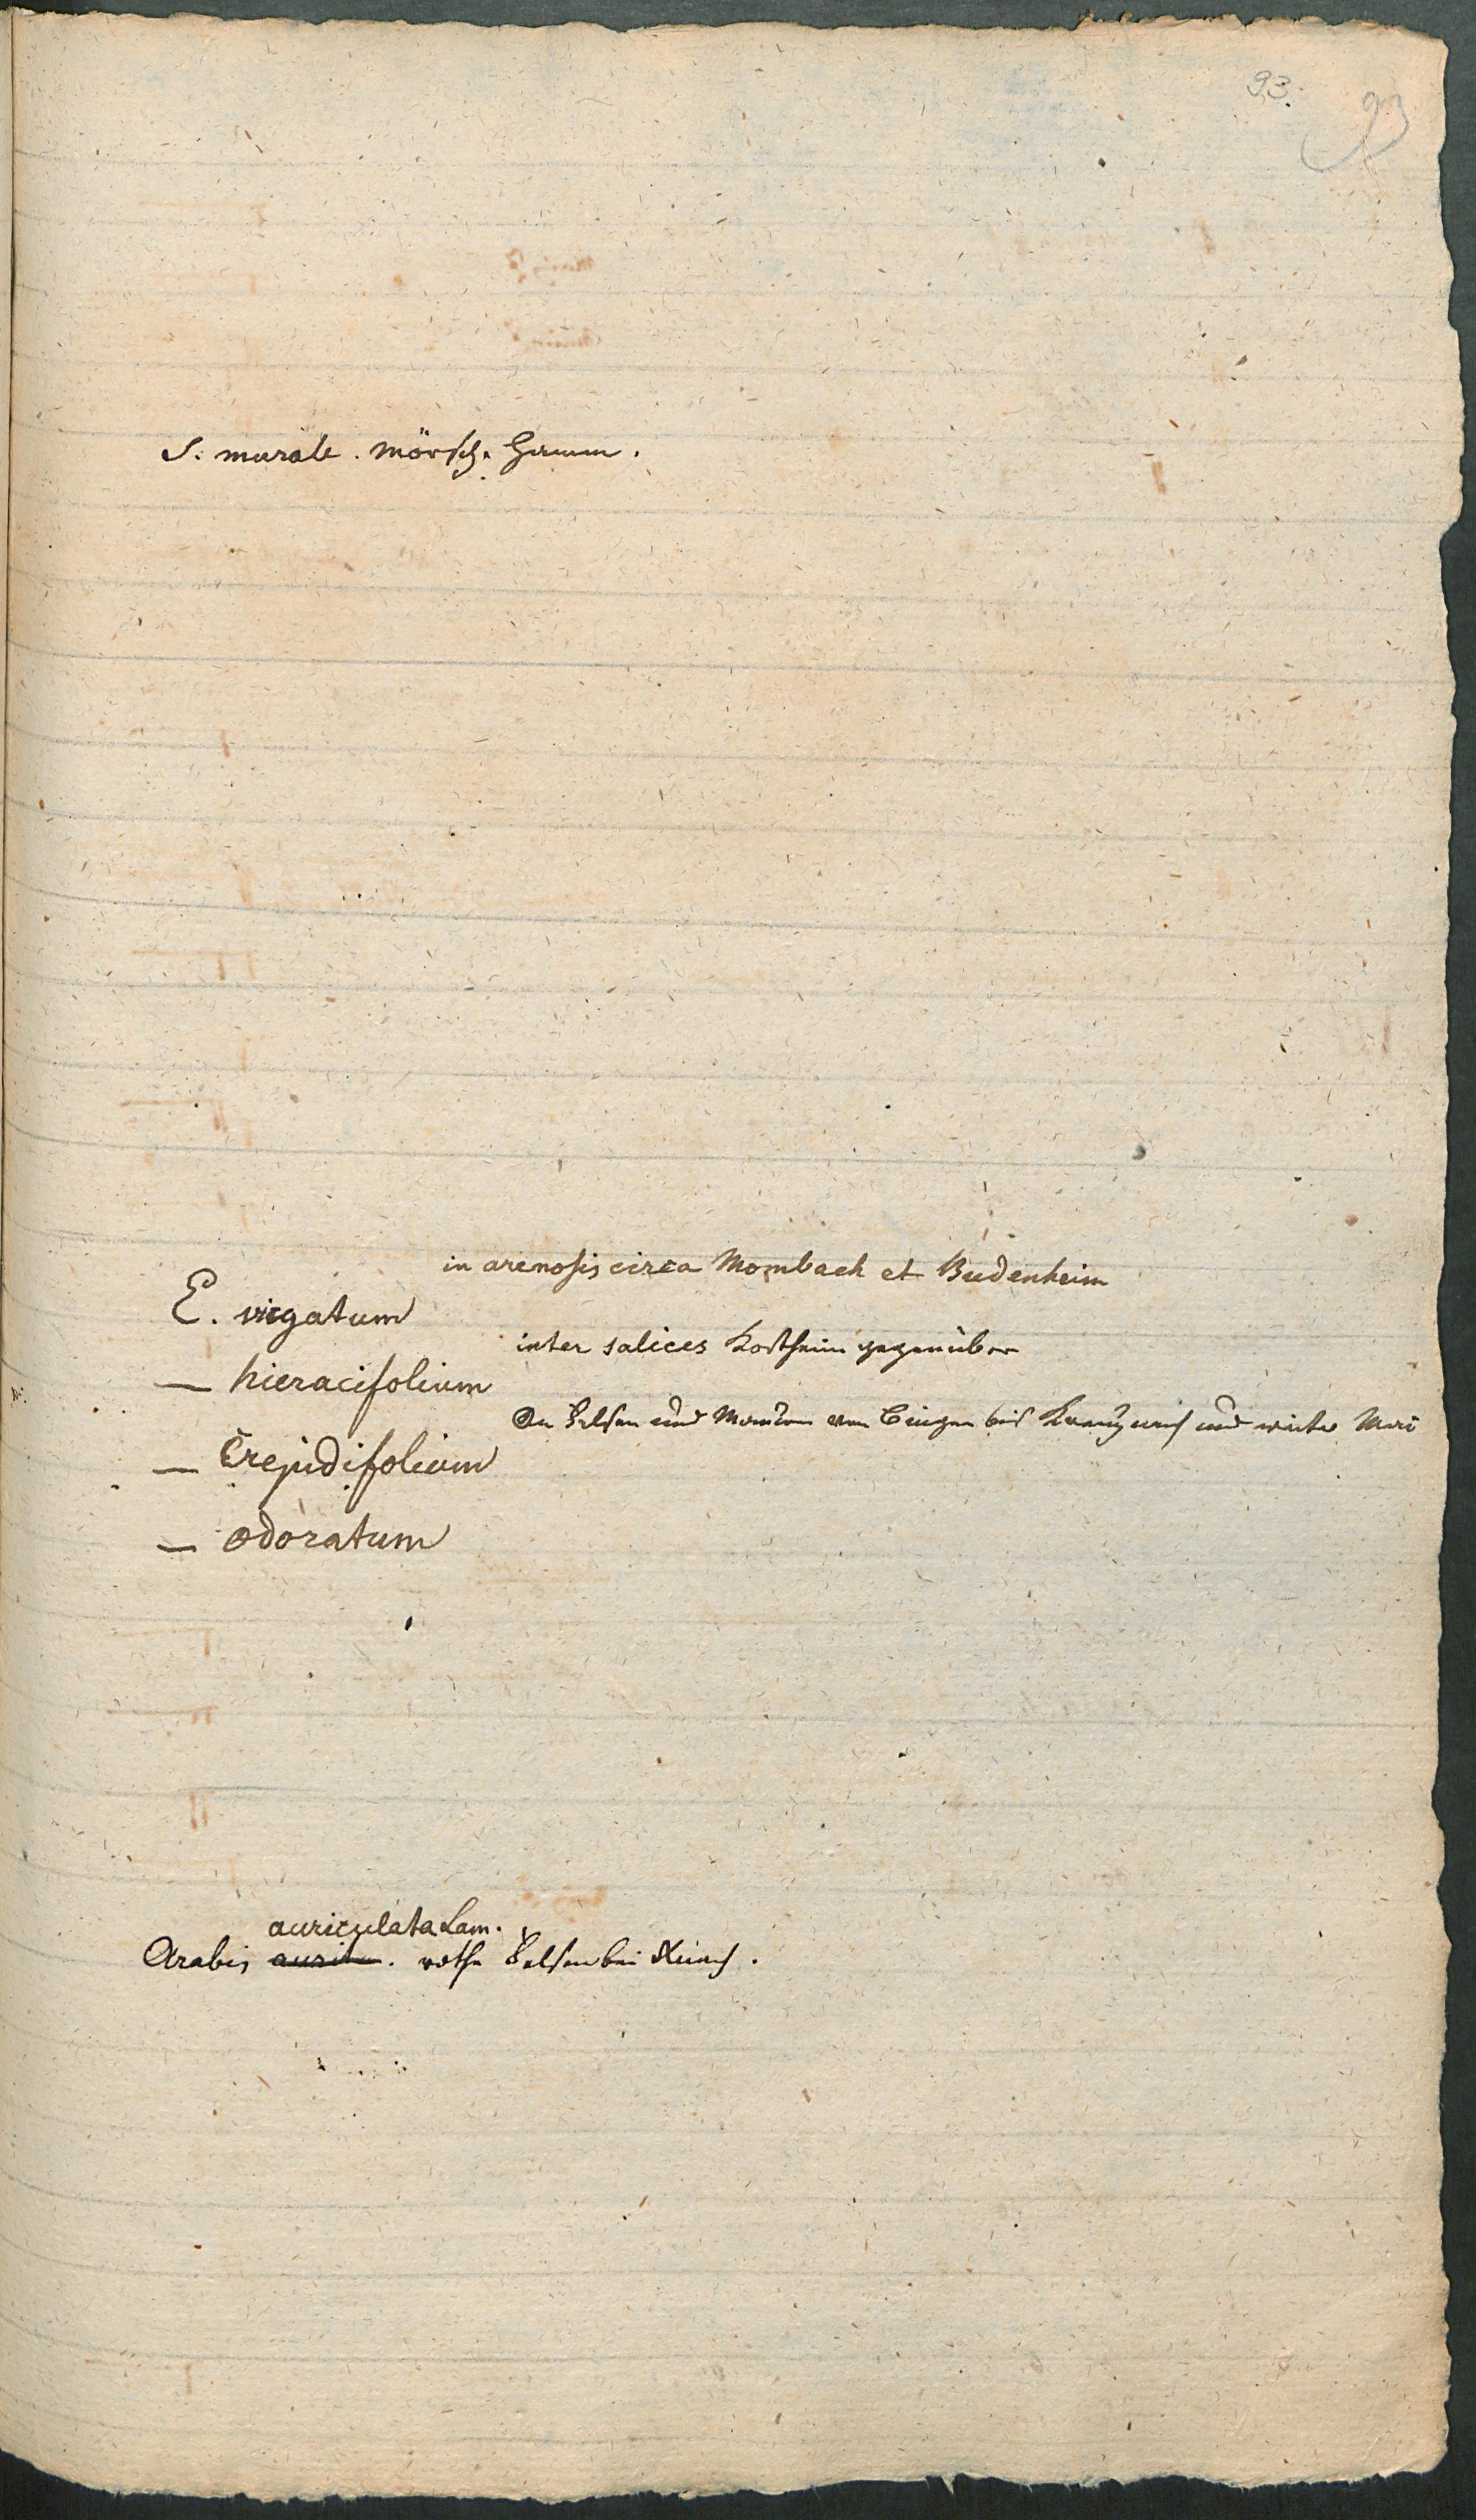 93.
93
S. murale. Mörsch.
in arenosis circa Mombach et Budenheim
E. virgatum
inter salices Kostheim gegenüber
— hieracifolium
An Felsen und Mauern von Bingen bis Kreuznach und weiter
— Crepidifolium
— odoratum
auriculata Lam.
Arabis aurita. rothe Felsen bei